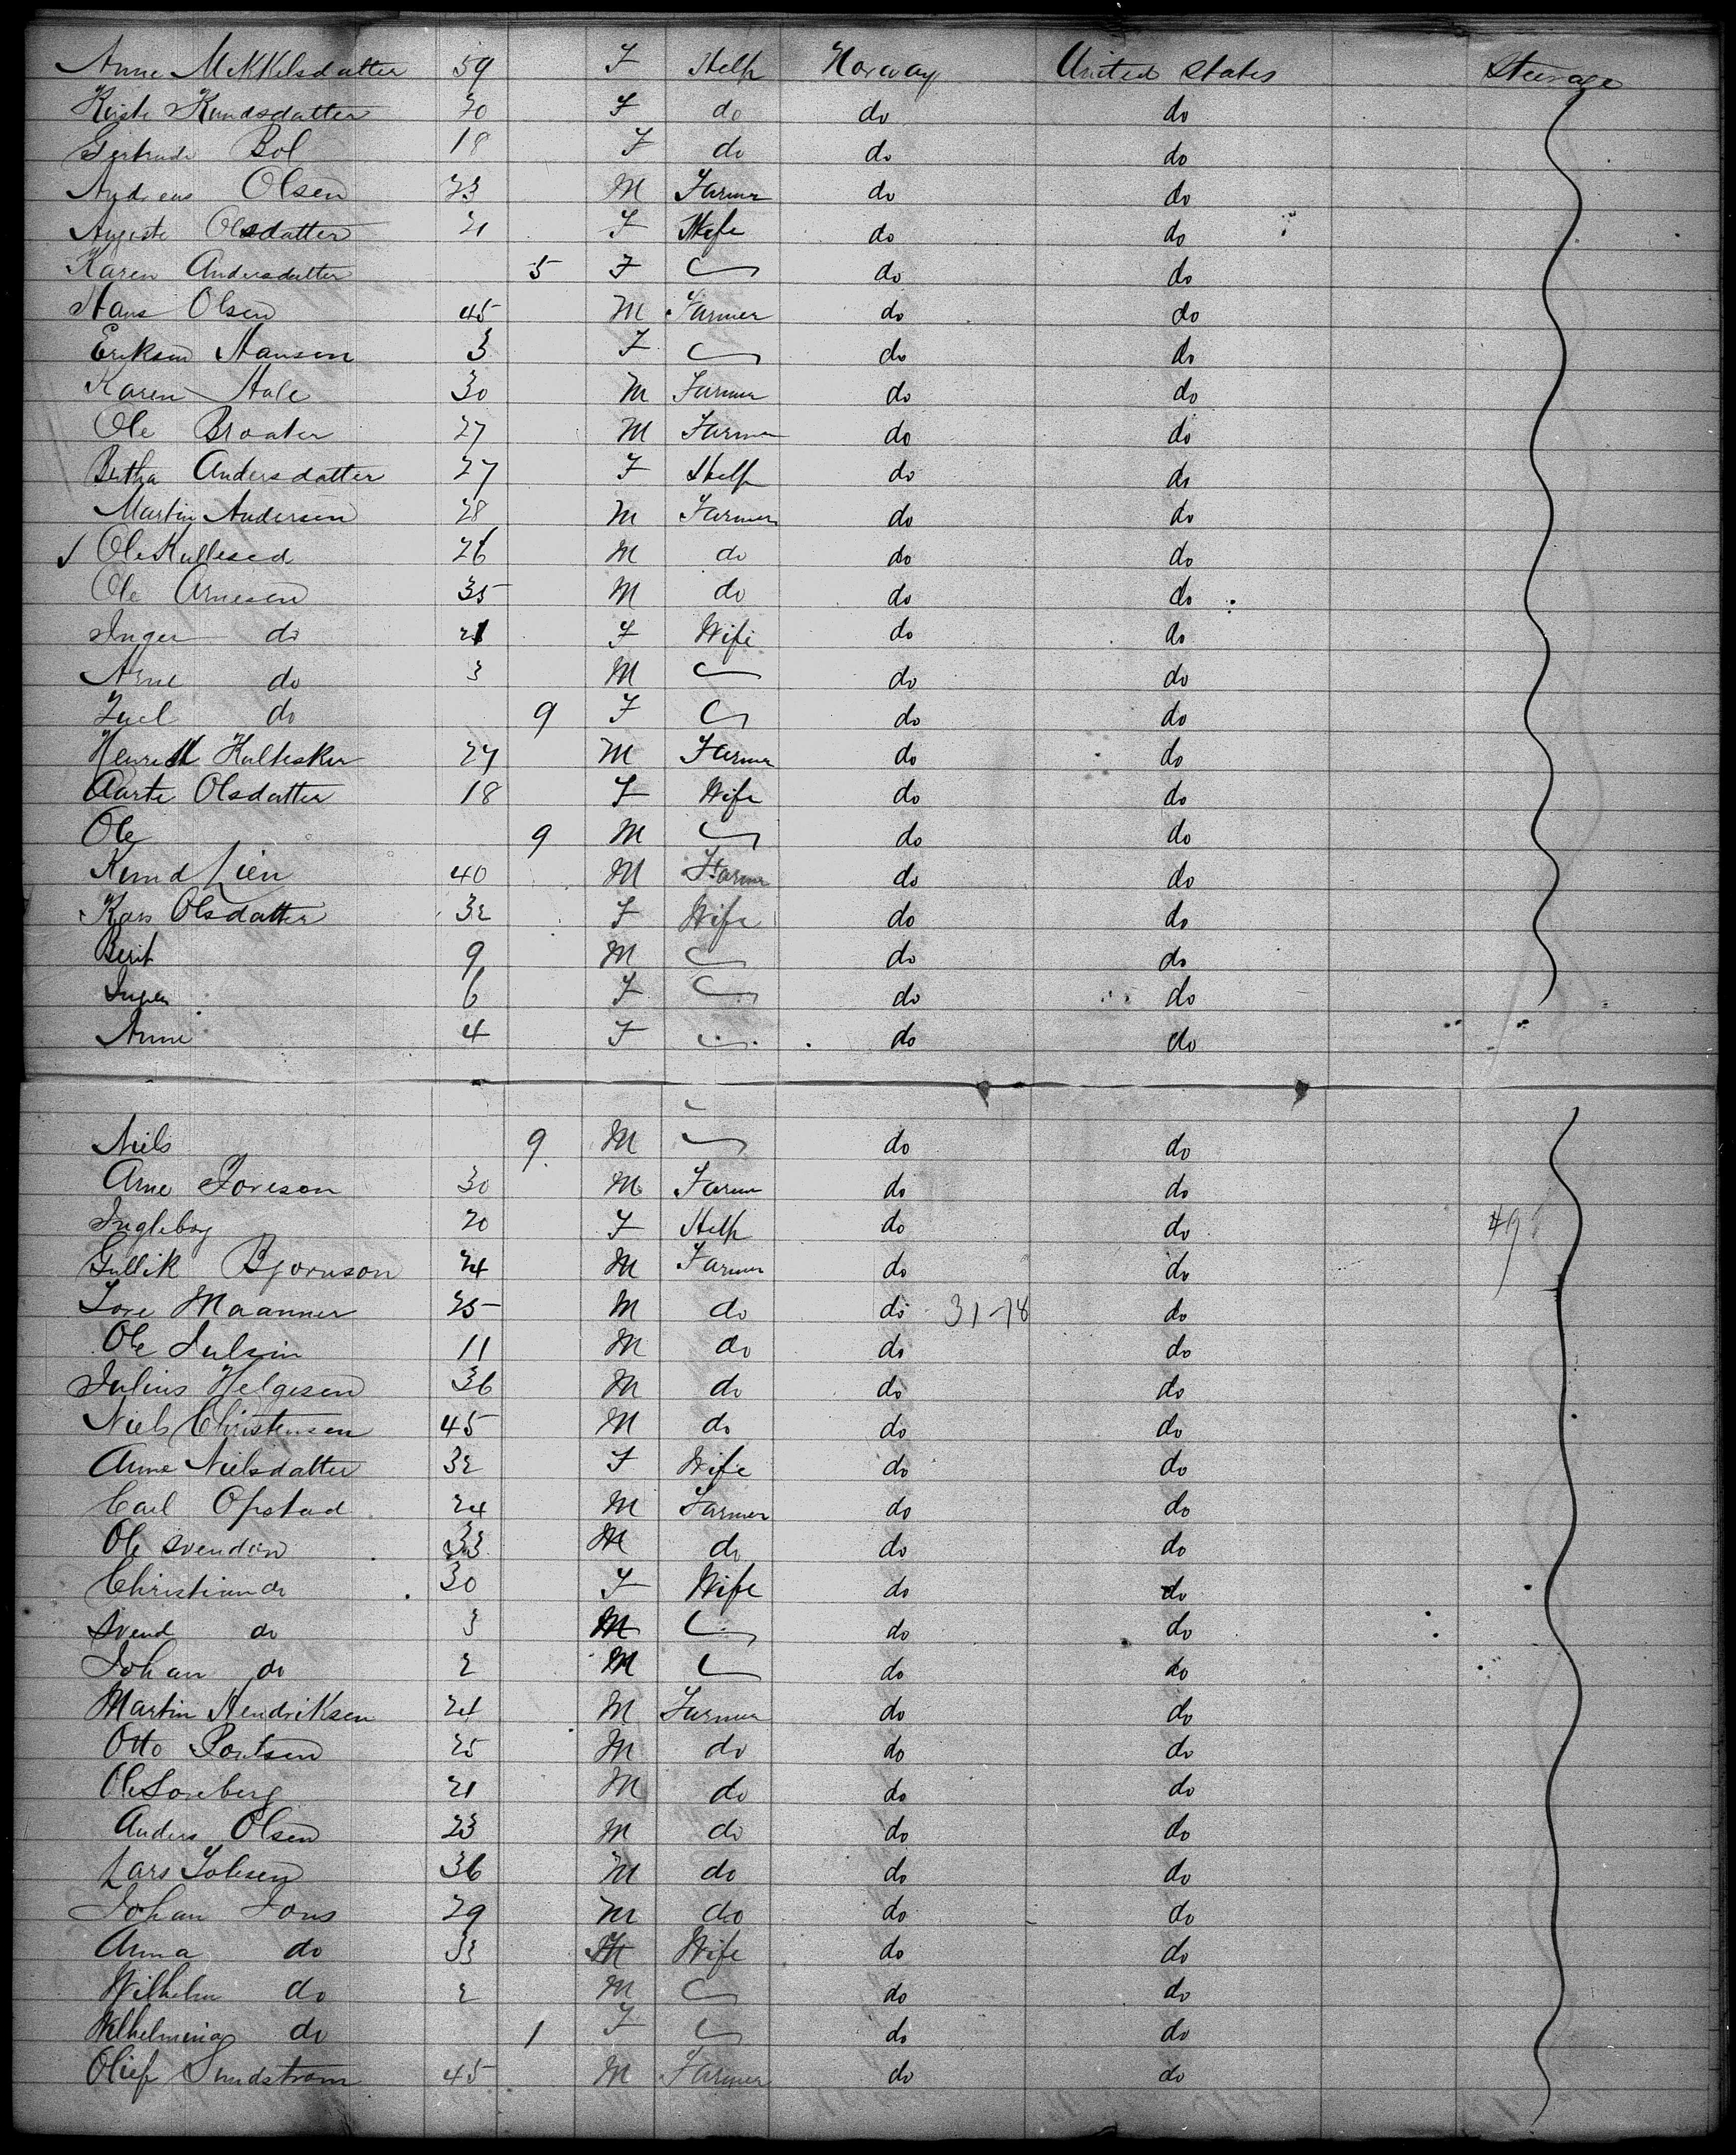 Anne Mekkelsdatter 59 F Help Norway United States Steerage
Kirste Knudsdatter 30 F do do do
Gertrude Bol 18 F do do do
Andreas Olsen 23 M Farmer do do
Auguste Olsdatter 21 F Wife do do
Karen Andersdatter 5 F do do
Hans Olsen 45 M Farmer do do
Eriksen Hansen 3 F do do
Karen Hale 30 M Farmer do do
Ole Broaten 27 M Farmer do do
Bertha Andersdatter 27 F Help do do
Martin Andersen 28 M Farmer do do
Ole Kullesed 26 M do do do
Ole Arnesen 35 M do do do
Inger do 21 F Wife do do
Arne do 3 M do do
Juel do 9 F do do
Henrick Kultesker 27 M Farmer do do
Aarte Olsdatter 18 F Wife do do
Ole 9 M do do
Knud Lien 40 M Farmer do do
Kari Olsdatter 32 F Wife do do
Berit 9 M do do
Inger 6 F do do
Anne 4 F do do
Niels 9 M do do
Arne Toreson 30 M Farmer do do
Ingleborg 20 F Help do do 49
Gullik Bjornson 24 M Farmer do do
Tore Maanner 25 M do do 31-78 do
Ole Julsin 11 M do do do
Julius Helgesen 36 M do do do
Niels Christensen 45 M do do do
Anne Nielsdatter 32 F Wife do do
Carl Opstad 24 M Farmer do do
Ole Svendsen 33 M do do do
Christian do 30 F Wife do do
Svend do 3 M do do
Johan do 2 M do do
Martin Hendriksen 24 M Farmer do do
Otto Poulsen 25 M do do do
Ole Soreberg 21 M do do do
Anders Olsen 23 M do do do
Lars Tobesen 36 M do do do
Johan Jons 29 M do do do
Anna do 33 F Wife do do
Wilhelm do 2 M do do
Wilhelmina do 1 F do do
Olief Sundstrom 45 M Farmer do do